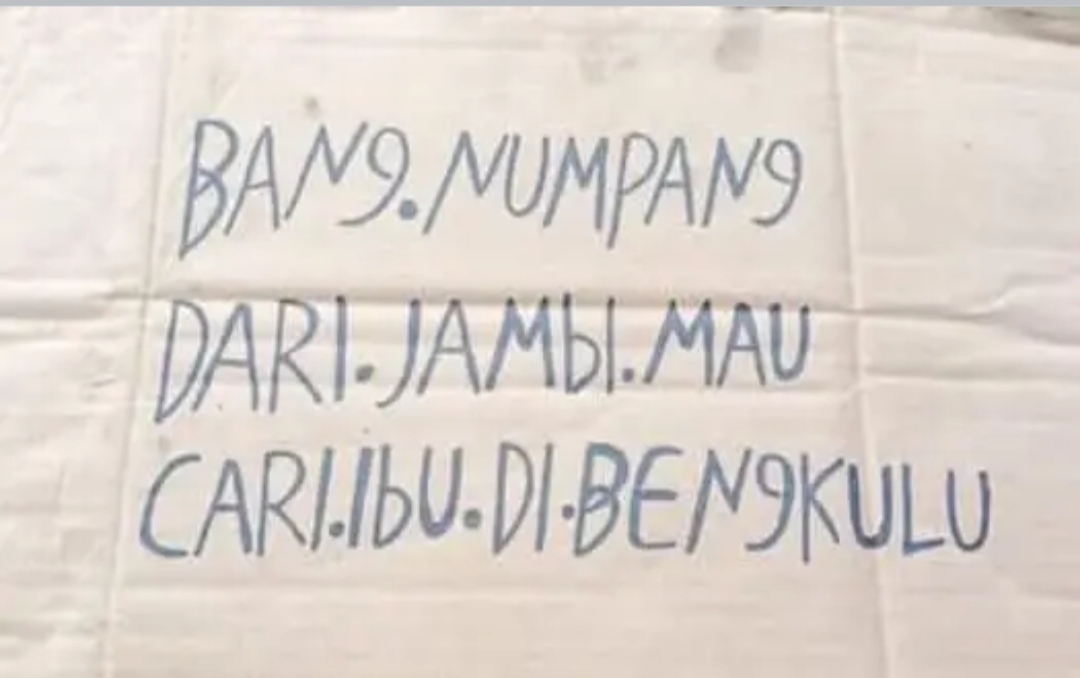 BANg.NUMPANg
DARI.JAMbI.MAU
CARI.IbU.DI.BENgKULU